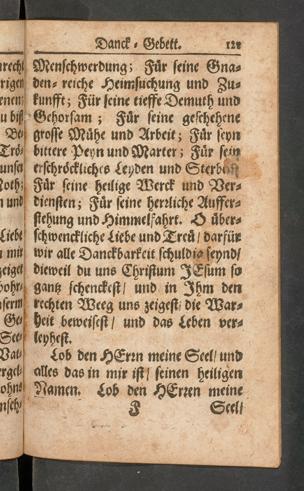 Danck-Gebett. 121
Menschwerdung; Für seine Gna-
den-reiche Heimsuchung und Zu-
kunfft; Für seine tieffe Demuth und
Gehorsam; Für seine geschehene
grosse Mühe und Arbeit; Für seyn
bittere Peyn und Marter; Für sein
erschröckliches Leyden und Sterben;
Für seine heilige Werck und Ver-
diensten; Für seine herzliche Auffer-
stehung und Himmelfahrt. O über-
schwenckliche Liebe und Treü/ darfür
wir alle Danckbarkeit schuldig seynd/
dieweil du uns Christum JEsum so
gantz schenckest/ und in Jhm den
rechten Weeg uns zeigest/ die War-
heit beweisest/ und das Leben ver-
leyhest.
Lob den HErrn meine Seel/ und
alles das in mir ist/ seinen heiligen
Namen. Lob den HErren meine
J Seel/